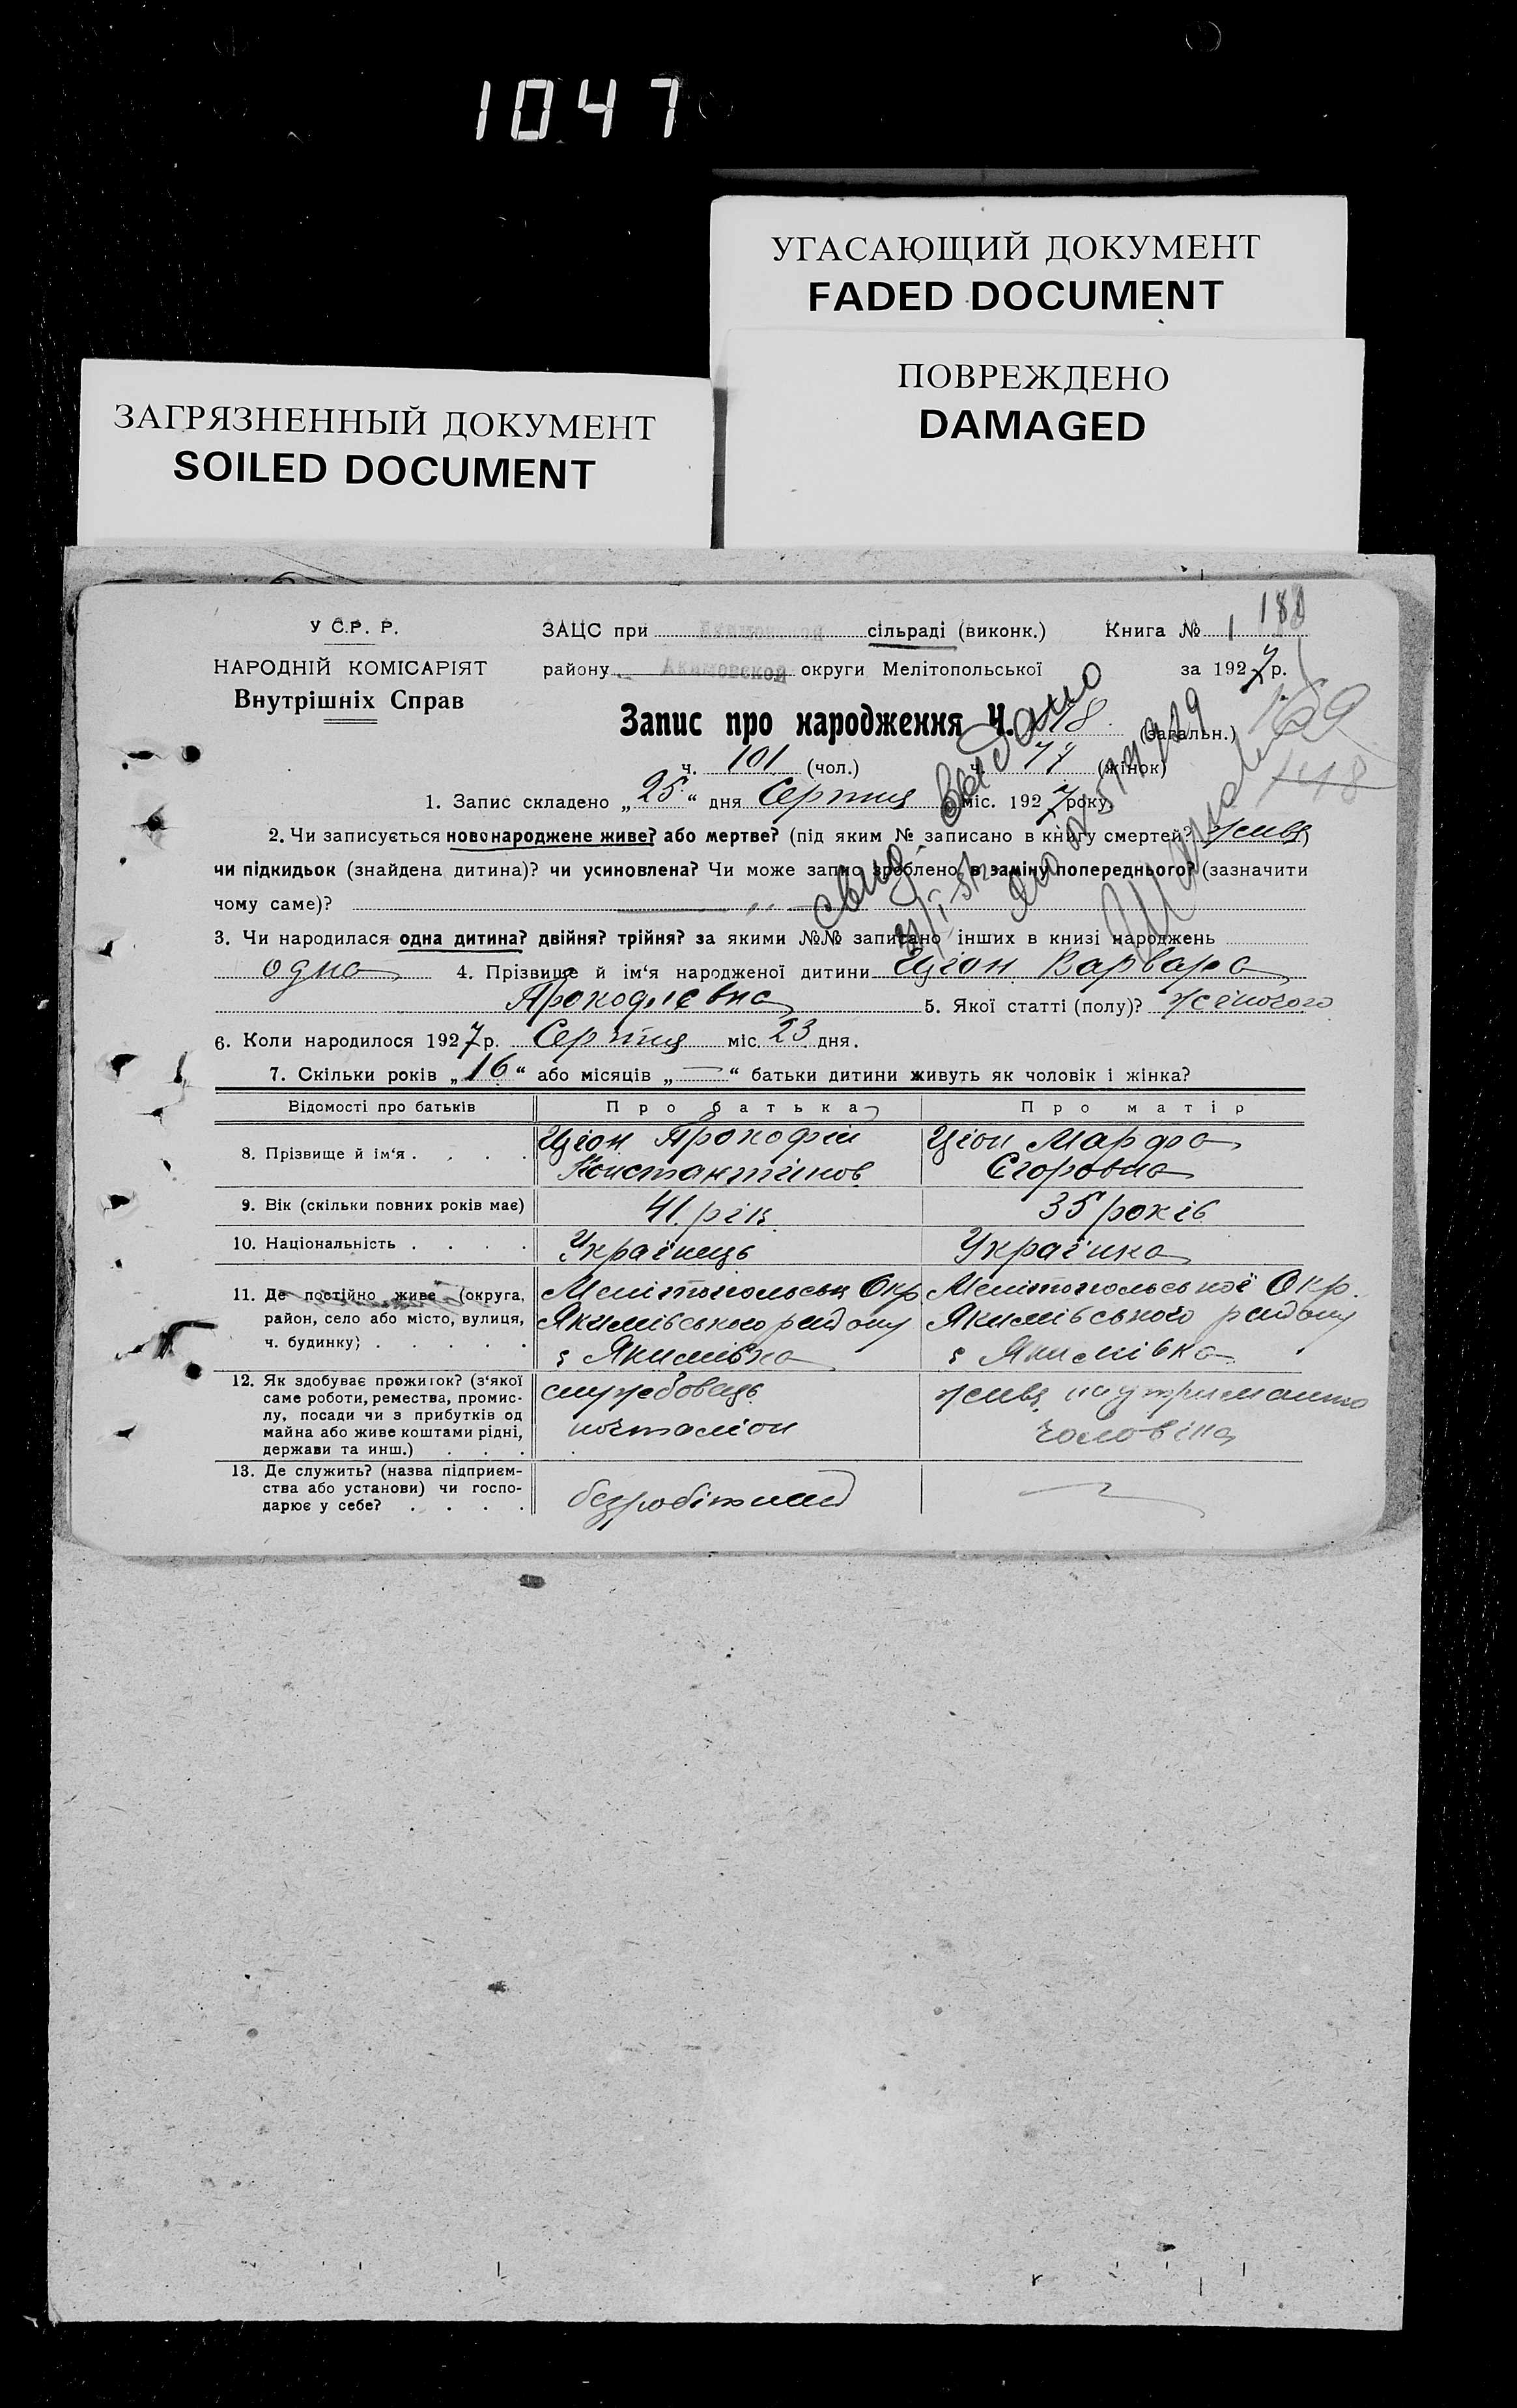 1047
УГАСАЮЩИЙ ДОКУМЕНТ
FADED DOCUMENT
ПОВРЕЖДЕНО
DAMAGED
ЗАГРЯЗНЕННЫЙ ДОКУМЕНТ
SOILED DOCUMENT
У С.Р. Р.
НАРОДНІЙ КОМІСАРІЯТ
Внутрішніх Справ
ЗАЦС при Акимовской сільраді (виконк.) Книга № 1
району Акимовской округи Мелітопольської за 1927 р.
Запис про народження Ч. (загальн.)
169
148
ч. 101 (чол.) ч. 77 (жінок)
1. Запис складено „25“ дня Серпня міс. 1927 року
2. Чи записується новонароджене живе? або мертве? (під яким № записано в книгу смертей? живе)
чи підкидьок (знайдена дитина)? чи усиновлена? Чи може запис зроблено в заміну попереднього? (зазначити
чому саме)?
свид. видано
3. Чи народилася одна дитина? двійня? трійня? за якими №№ записано інших в книзі народжень
одна 4. Прізвище й ім‘я народженої дитини Ціон Варвара
Прокофієвна 5. Якої статті (полу)? жіночого
6. Коли народилося 1927 р. Серпня міс. 23 дня.
7. Скільки років „16“ або місяців „—“ батьки дитини живуть як чоловік і жінка?
Відомості про батьків Про батька Про матір
8. Прізвище й ім‘я . . . . Ціон Прокофій Константінов Ціон Марфа Єгоровна
9. Вік (скільки повних років має) 41 рік 35 років
10. Національність . . . . Українець Українка
11. Де постійно живе (округа, район, село або місто, вулиця, ч. будинку) . . . . . Мелітопольськ Окр. Якимівського району с Якимівка Мелітопольської Окр. Якимівського району с Якимівка
12. Як здобуває прожиток? (з‘якої саме роботи, ремества, промислу, посади чи з прибутків од майна або живе коштами рідні, держави та инш.) . . . службовець почталіон живе на утриманню чоловіка
13. Де служить? (назва підприємства або установи) чи господарює у себе? . . . . безробітний